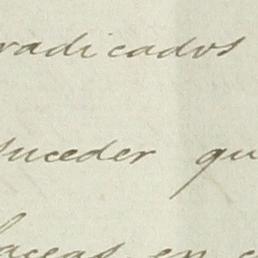 radicados
suceder qu
en